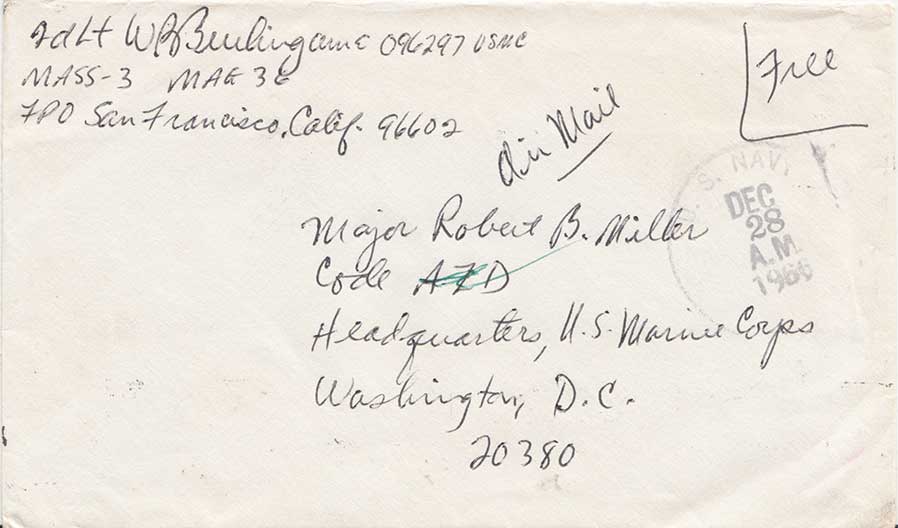 2dLt WR Burlingame 096297 USMC
MASS-3 MAG 36
FPO San Francisco, Calif. 96602
Free
Air Mail
U. S. NAVY
DEC
28
A.M.
1966
Major Robert B. Miller
Code
Headquarters, U.S. Marine Corps
Washington, D.C.
20380